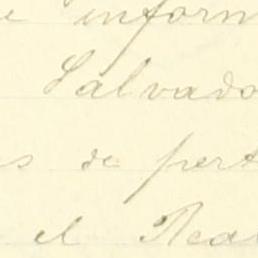 e inform
Salvado
s de pert
el Real